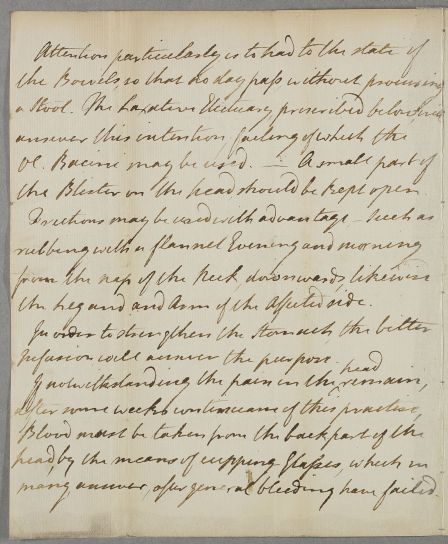 Attention particularly is to had to the state of
the Bowels, so that no day pass without procuring
a Stool. The Laxative Electuary prescribed below will
answer this intention failing of which the
Ol. Ricini may be used. — A small part of
the Blister on the head should be kept open
Frictions may be used with advantage – such as
rubbing with a flannel Evening and morning
from the nap of the Neck, downwards, likewise
the Leg and and Arm of the Affected side.
In order to strengthen the Stomach, the bitter
Infusion will answer the purpose.
If notwithstanding the pain in the head remain,
after some weeks continuance of this practise,
Blood must be taken from the back part of the
head, by the means of cupping Glasses, which in
many answer, after general bleeding have failed